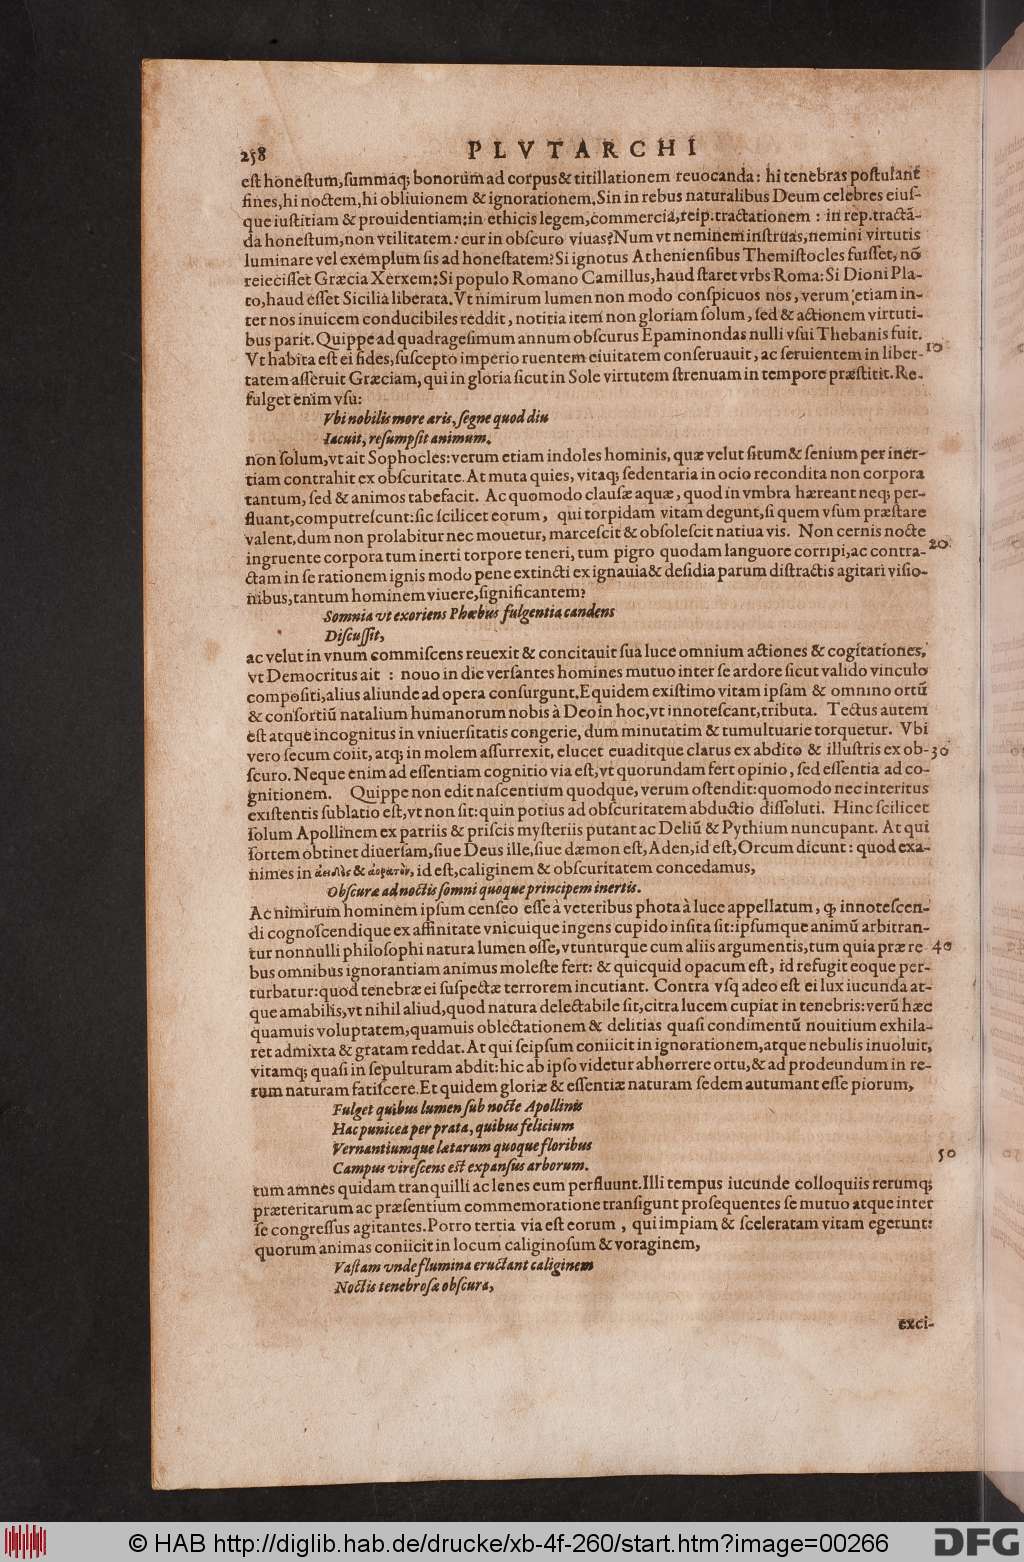 258 PLVTARCHI
est honestum, summāq; bonorum ad corpus & titillationem reuocanda: hi tenebras postulant
fines, hi noctem, hi obliuionem & ignorationem, Sin in rebus naturalibus Deum celebres eius-
que iustitiam & prouidentiam; in ethicis legem, commercia, reip. tractationem : in rep. tractā-
da honestum, non vtilitatem: cur in obscuro viuas? Num vt neminem instruas, nemini virtutis
luminare vel exemplum sis ad honestatem? Si ignotus Atheniensibus Themistocles fuisset, nō
reiecisset Græcia Xerxem: Si populo Romano Camillus, haud staret vrbs Roma: Si Dioni Pla-
to, haud esset Sicilia liberata. Vt nimirum lumen non modo conspicuos nos, verum etiam in-
ter nos inuicem conducibiles reddit, notitia item non gloriam solum, sed & actionem virtuti-
bus parit. Quippe ad quadragesimum annum obscurus Epaminondas nulli vsui Thebanis fuit.
Vt habita est ei fides, suscepto imperio ruentem ciuitatem conseruauit, ac seruientem in liber- 10
tatem asseruit Græciam, qui in gloria sicut in Sole virtutem strenuam in tempore præstitit. Re-
fulget enim vsu:
Vbi nobilis more æris, segne quod diu
Iacuit, resumpsit animum.
non solum, vt ait Sophocles: verum etiam indoles hominis, quæ velut situm & senium per iner-
tiam contrahit ex obscuritate. At muta quies, vitaq; sedentaria in ocio recondita non corpora
tantum, sed & animos tabefacit. Ac quomodo clausæ aquæ, quod in vmbra hæreant neq; per-
fluant, computrescunt: sic scilicet eorum, qui torpidam vitam degunt, si quem vsum præstare
valent, dum non prolabitur nec mouetur, marcescit & obsolescit natiua vis. Non cernis nocte
ingruente corpora tum inerti torpore teneri, tum pigro quodam languore corripi, ac contra- 20
ctam in se rationem ignis modo pene extincti ex ignauia & desidia parum distractis agitari visio-
nibus, tantum hominem viuere, significantem?
Somnia vt exoriens Phœbus fulgentia candens
Discussit,
ac velut in vnum commiscens reuexit & concitauit sua luce omnium actiones & cogitationes,
vt Democritus ait : nouo in die versantes homines mutuo inter se ardore sicut valido vinculo
compositi, alius aliunde ad opera consurgunt, Equidem existimo vitam ipsam & omnino ortū
& consortiū natalium humanorum nobis à Deo in hoc, vt innotescant, tributa. Tectus autem
est atque incognitus in vniuersitatis congerie, dum minutatim & tumultuarie torquetur. Vbi
vero secum coiit, atq; in molem assurrexit, elucet euaditque clarus ex abdito & illustris ex ob- 30
scuro. Neque enim ad essentiam cognitio via est, vt quorundam fert opinio, sed essentia ad co-
gnitionem. Quippe non edit nascentium quodque, verum ostendit: quomodo nec interitus
existentis sublatio est, vt non sit: quin potius ad obscuritatem abductio dissoluti. Hinc scilicet
solum Apollinem ex patriis & priscis mysteriis putant ac Deliū & Pythium nuncupant. At qui
sortem obtinet diuersam, siue Deus ille, siue dæmon est, Aden, id est, Orcum dicunt: quod exa-
nimes in ἀειδὲς & ἀορατὸν, id est, caliginem & obscuritatem concedamus,
Obscuræ ad noctis somni quoque principem inertis.
Ac nimirum hominem ipsum censeo esse à veteribus phota à luce appellatum, ꝙ innotescen-
di cognoscendique ex affinitate vnicuique ingens cupido insita sit: ipsumque animū arbitran-
tur nonnulli philosophi natura lumen esse, vtunturque cum aliis argumentis, tum quia præ re- 40
bus omnibus ignorantiam animus moleste fert: & quicquid opacum est, id refugit eoque per-
turbatur: quod tenebræ ei suspectæ terrorem incutiant. Contra vsq adeo est ei lux iucunda at-
que amabilis, vt nihil aliud, quod natura delectabile sit, citra lucem cupiat in tenebris: verū hæc
quamuis voluptatem, quamuis oblectationem & delitias quasi condimentū nouitium exhila-
ret admixta & gratam reddat. At qui seipsum coniicit in ignorationem, atque nebulis inuoluit,
vitamq; quasi in sepulturam abdit: hic ab ipso videtur abhorrere ortu, & ad prodeundum in re-
rum naturam fatiscere. Et quidem gloriæ & essentiæ naturam sedem autumant esse piorum,
Fulget quibus lumen sub nocte Apollinis
Hac punicea per prata, quibus felicium
Vernantiumque lætarum quoque floribus
Campus virescens est expansus arborum. 50
tum amnes quidam tranquilli ac lenes eum perfluunt. Illi tempus iucunde colloquiis rerumq;
præteritarum ac præsentium commemoratione transigunt prosequentes se mutuo atque inter
se congressus agitantes. Porro tertia via est eorum, qui impiam & sceleratam vitam egerunt:
quorum animas coniicit in locum caliginosum & voraginem,
Vastam vnde flumina eructant caliginem
Noctis tenebrosæ obscura,
exci-
© HAB http://diglib.hab.de/drucke/xb-4f-260/start.htm?image=00266
DFG